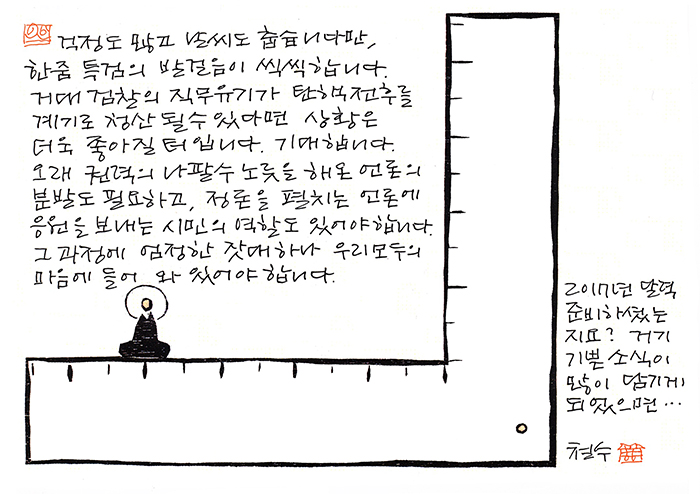 걱정도 많고 날씨도 춥습니다만,
한줌 특검의 발걸음이 씩씩합니다.
거대 검찰의 직무유기가 탄핵전후를
계기로 청산 될수 있다면 상황은
더욱 좋아질 터입니다. 기대합니다.
오래 권력의 나팔수 노릇을 해온 언론의
분발도 필요하고, 정론을 펼치는 언론에
응원을 보내는 시민의 역할도 있어야합니다.
그 과정에 엄정한 잣대하나 우리모두의
마음에 들어 와 있어야 합니다.
2017년 달력
준비하셨는
지요? 거기
기쁜 소식이
많이 담기게
되었으면…
철수